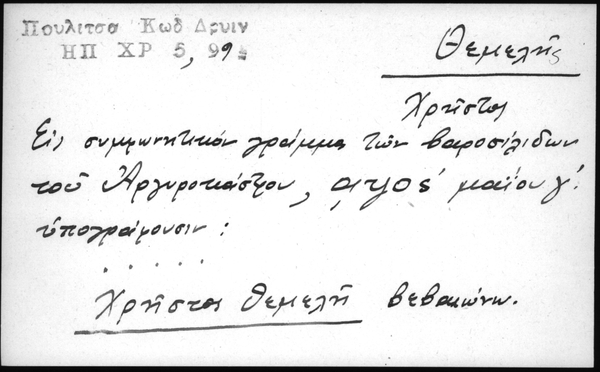 Πουλιτσα Κωδ Δρυιν
ΗΠ ΧΡ 5, 99
Θεμελῆς
Χρῆστος
Εἰς συμφωνητικόν γράμμα τῶν βαροσιλιδων
τοῦ Ἀργυροκάστρου, μαΐου γ΄.
ὑπογράφουσιν :
. . . . . .
Χρῆστος Θεμελῆ βεβαιώνω.